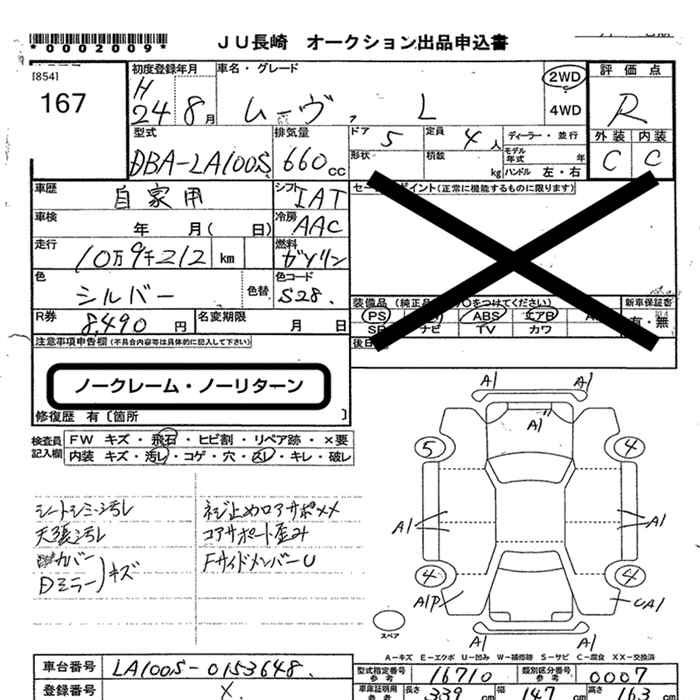 *0002009*
JU長崎 オークション出品申込書
[854]
167
初度登録年月
H
24 8月
車名・グレード
ムーヴ, L
2WD
4WD
評価点
R
外装 内装
C C
型式
DBA-LA100S
排気量
660cc
ドア 5
定員 4人
形状
積数 kg
ディーラー・並行
モデル年式 年
ハンドル 左・右
車歴 自家用
シフト IAT
車検 年 月( 日)
冷房 AAC
走行 10万9千212 km
燃料 ガソリン
色 シルバー
色替
色コード S28.
R券 8,490円
名変期限 月 日
注意事項申告欄(不具合内容等は具体的に記入して下さい)
ノークレーム・ノーリターン
修復歴 有〔箇所 〕
ポイント(正常に機能するものに限ります)
装備品 (純正品 ○をつけてください)
新車保証書
有・無
PS ABS エアB
ナビ TV カワ
検査員記入欄
FW キズ・飛石・ヒビ割・リペア跡・×要
内装 キズ・汚レ・コゲ・穴・スレ・キレ・破レ
シートシミ・汚レ
天張汚レ
カバー
Dミラー)キズ
ネジ止めロアサポメメ
コアサポート歪み
FサイドメンバーU
A1
A1
5
4
A1
A1
4
4
A1P
UA1
A1
スペア
A-キズ E-エクボ U-凹み W-補修跡 S-サビ C-腐食 XX-交換済
車台番号 LA100S-0153648.
登録番号 X.
型式指定番号 参考 16710
類別区分番号 参考 0007
車庫証明用 参考 長さ 339 cm 幅 147 cm 高さ 163 cm